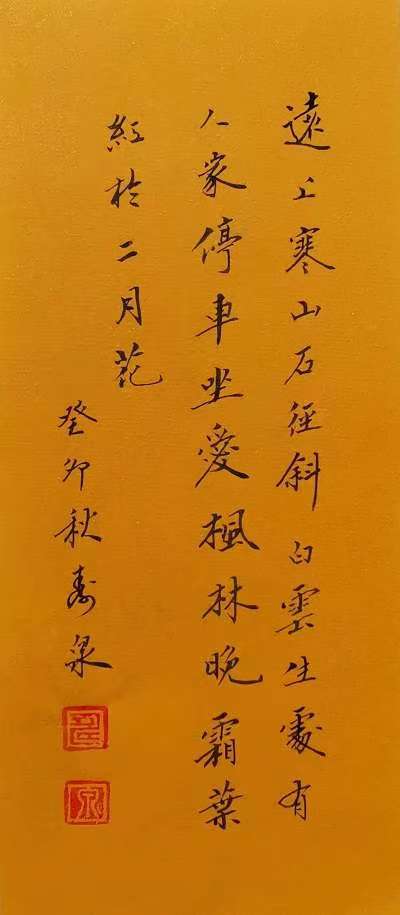 遠上寒山石徑斜白雲生處有
人家停車坐愛楓林晚霜葉
紅於二月花
癸卯秋壽泉